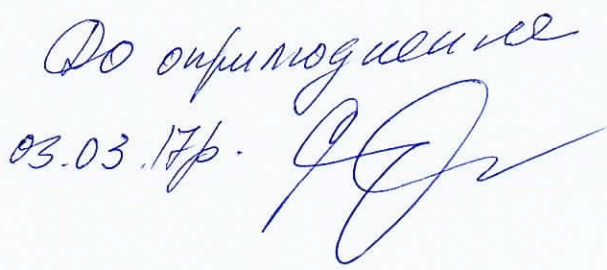 До оприлюднення
03.03.17р.